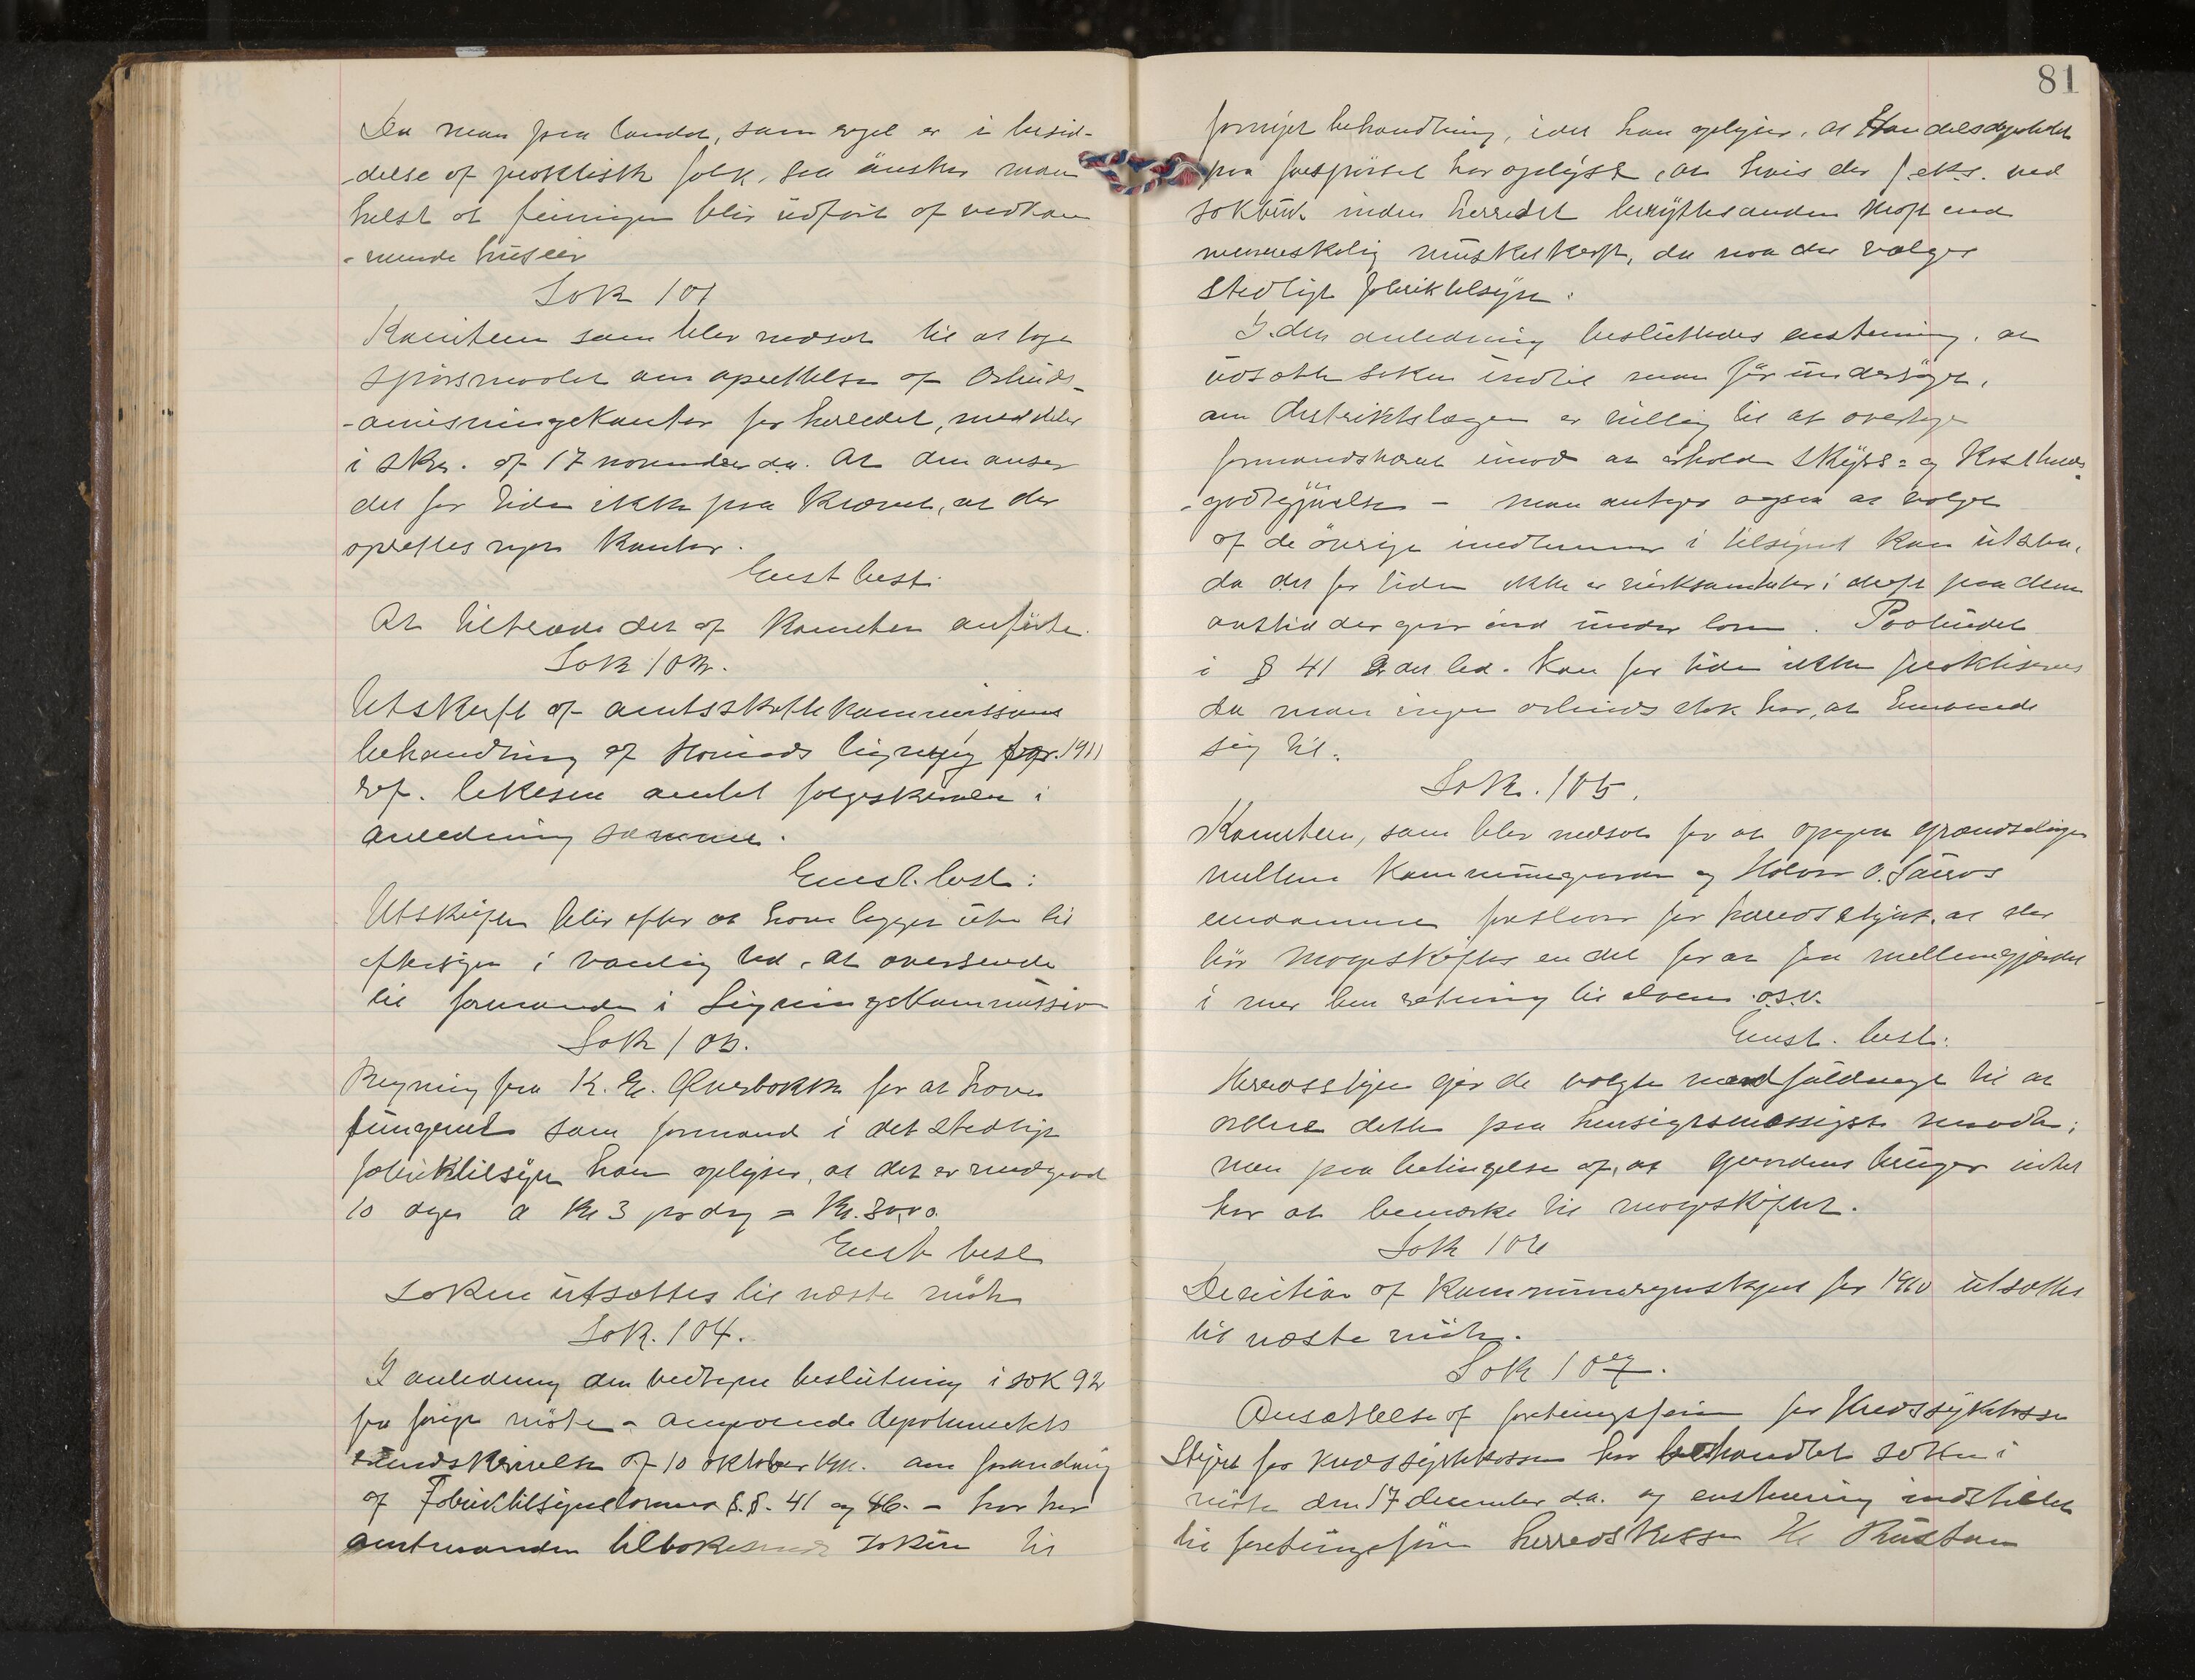 Da man paa landet, som regel er i besid-
-delse af praktisk folk, saa ønsker man
helst at feiningen blir udført af vedkom
-mende huseier
Sak 101
Komiteen som blev nedsat til at tage
spørsmaalet om oprettelse af Arbeids-
-anvisningskontor for herredet, meddeler
i skr. af 17 november d.a. At den anser
det for tiden ikke paa krævet, at der
oprettes nyet kontor.
Enst best:
At tiltræde det af komiteen anførte.
Sak 102.
Utskrift af amtsskattekommissions
behandling af Herreds ligning for 1911
ref. likesom andet følgeskrivelse i
anledning samme.
Enst. best:
Utskriften blir efter at have ligget ute til
eftersyn i vanlig tid, at oversende
til formanden i Ligningskommission
Sak 103.
Regning fra K. E. Øverbakke for at have
fungeret som formand i det stedlige
fabriktilsyn han oplyser, at det er medgaad
10 dager a Kr 3 pr dag = Kr. 30,00.
Enst. besl
Saken utsættes til næste møte
Sak. 104.
I anledning den vedtagne beslutning i sak 92
fra forige møte - angaaende departementets
rundskrivelse af 10 oktober om forandring
af Fabriktilsynslovens §.§. 41 og 46. - har her
amtmanden tilbakesendt saken til
81
fornyet behandling, idet han oplyser, at Handelsdepartetet
paa forespørsel har oplyst, at hvis der f.eks. ved
sakbruk inden herredet benyttes anden kraft end
menneskelig muskelkraft, da maa der vælges
stedligt fabriktilsyn.
I den anledning besluttedes enstemig, at
udsætte saken indtil man får undersøgt,
om Distriktslægen er villig til at overtage
formandshvervet imod at erholde skyds= og Kosthold
-godtgjørelse - man antager ogsaa at valget
af de øvrige medlemmer i tilsynet kan utstaa,
da det for tiden ikke er virksomheter i drift paa denne
aarstid der gaar ind under loven. Paabudet
i § 41 2det led. kan for tiden ikke praktiseres
da man ingen arbeids stok har, at henvende
sig til.
Sak. 105.
Komiteen, som blev nedsat for at opgaa grændselinjen
mellem kommunegaarden og Halvor O. Sauros
eiendomme foreslaar for herredstyret, at der
bør mageskiftes en del for at faa mellemgjærdet
i mer ben retning til elven o.s.v.
Enst. besl:
Herredsstyre gir de valgte mænd fuldmagt til at
ordne dette paa hensigtsmæssigste maade;
men paa betingelse af, at gaardens bruger intet
har at bemerke til mageskiftet.
Sak 106
Decition af kommuneregnskapet for 1910 utsættes
til næste møte.
Sak 107.
Ansættelse af forretningsfører for Kredssykekasse
Styret for kredssykekassen har behandlet saken i
møte den 17 december d.a. og enstemig indstillet
til foretningsfører herredskasser H.